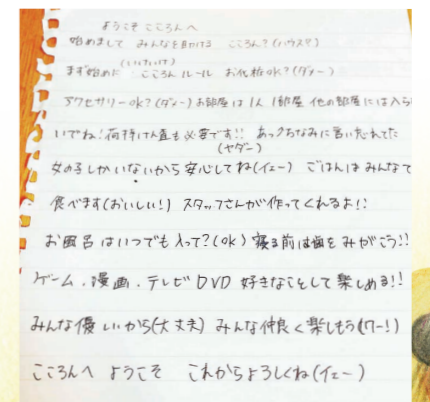 ようこそ こころんへ
始めまして みんなを助ける こころん?(ハウス?)
(いけいけ)
まず始めた こころんルール お化粧ok?(ダメー)
アクセサリーok?(ダメー)お部屋は1人1部屋 他の部屋には入ら
いでね!荷持け人直も必要です!! あっっちなみに言い忘れてた
(ヤダー)
女の子しかいないから安心してね(イェー) ごはんはみんなで
食べます(おいしい!) スタッフさんが作ってくれるよ!!
お風呂はいつでも入って?(ok) 寝る前は歯をみがこう!!
ゲーム.漫画.テレビDVD 好きなことして楽しめる!!
みんな優しいから(大丈夫) みんな仲良く楽しもう(ワー!)
こころんへ ようこそ これからよろしくね(イェー)